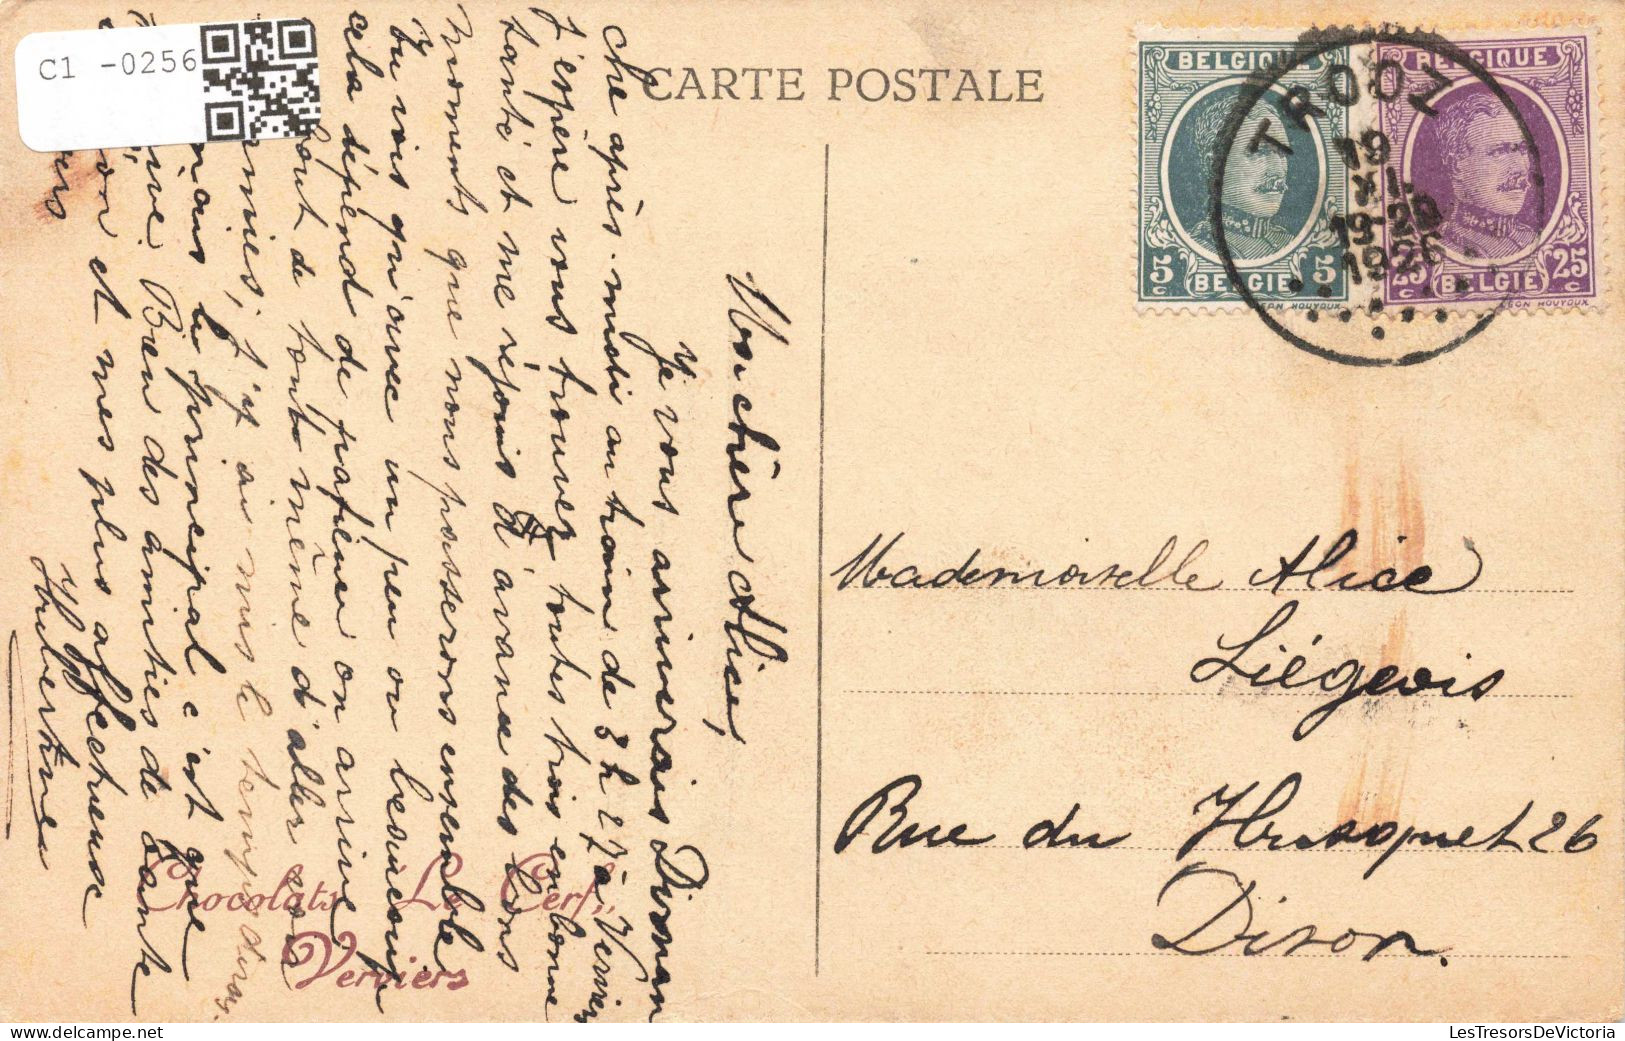 C1 -0256
CARTE POSTALE
BELGIQUE
5 c 5 c
BELGIE
LEON HOUYOUX
BELGIQUE
25 c 25 c
BELGIE
LEON HOUYOUX
TROOZ
19
XI-19
19-26
1926
Ma chère Alice,
Je vous arriverais Diman
che après-midi au train de 3h 27 à Verviers
J'espère vous trouver toutes trois en bonne
santé et me réjouis d'avance des bons
moments que nous passerons ensemble
Tu vois qu'avec un peu ou beaucoup
cela dépend de patience on arrive
bout de tout même d'aller voir
amies, j'y ai mis le temps dirais
mais le principal c'est que
Bien des amitiés de Tante
on et mes plus affectueux
Hubertine
Mademoiselle Alice
Liégeois
Rue du Husquet 26
Dison.
Chocolats "Le Cerf"
Verviers
LesTresorsDeVictoria